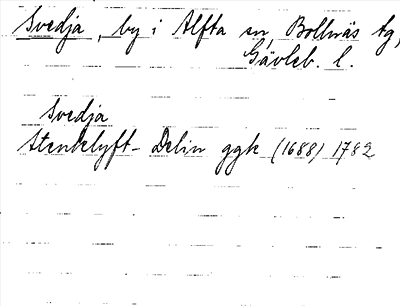 Svedja, by i Alfta sn, Bollnäs tg,
Gävleb. l.
Svedja
Stenklyft- Delin ggk (1688) 1782